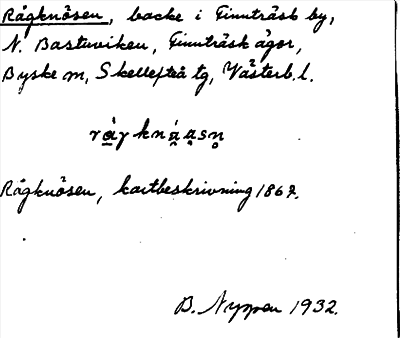 Rågknösen, backe i Finnträsk by,
N. Bastuviken, Finnträsk ägor,
Byske sn, Skellefteå tg, Västerb. l.
Rågknösen, kartbeskrivning 1867.
B. Nyppen 1932.